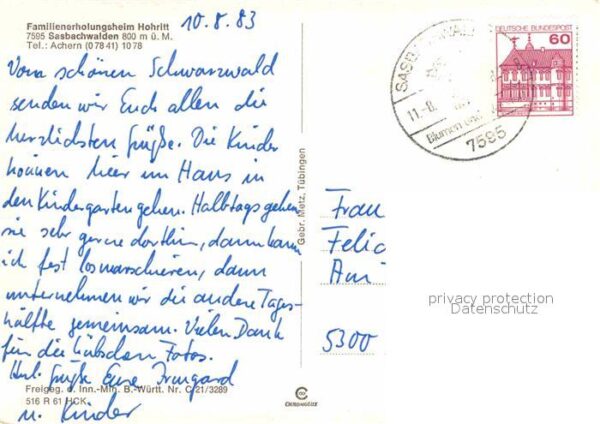 Familienerholungsheim Hohritt
7595 Sasbachwalden 800 m ü. M.
Tel.: Achern (0 78 41) 10 78
10.8.83
Vom schönen Schwarzwald
senden wir Euch allen die
herzlichsten Grüße. Die Kinder
können hier im Haus in
den Kindergarten gehen. Halbtags gehen
sie sehr gerne dorthin, dann kann
ich fest losmarschieren, dann
unternehmen wir die andere Tages-
hälfte gemeinsam. Vielen Dank
für die hübschen Fotos.
Herzl. Grüße Eure Irmgard
u. Kinder
Freigeg. d. Inn.-Min. B.-Württ. Nr. C 21/3289
516 R 61 HCK
Gebr. Metz, Tübingen
DEUTSCHE BUNDESPOST
60
SASBACHWAL
11.-8.
Blumen und
7595
Frau
Felic
5300
privacy protection
Datenschutz